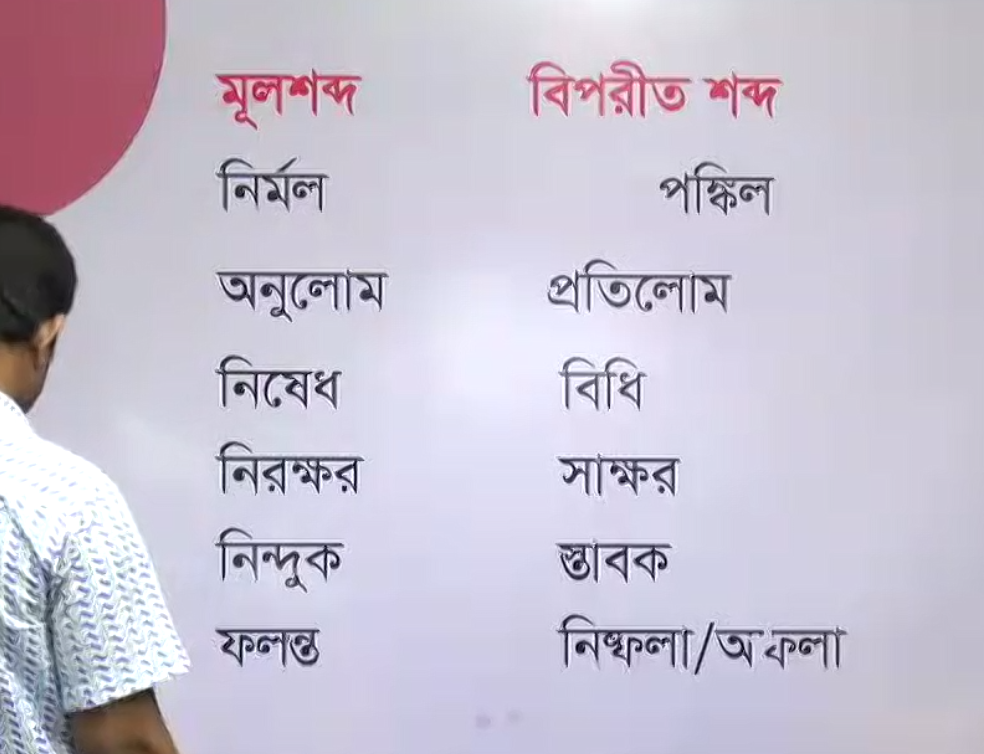 মূলশব্দ বিপরীত শব্দ
নির্মল পঙ্কিল
অনুলোম প্রতিলোম
নিষেধ বিধি
নিরক্ষর সাক্ষর
নিন্দুক স্তাবক
ফলন্ত নিষ্ফলা/অফলা